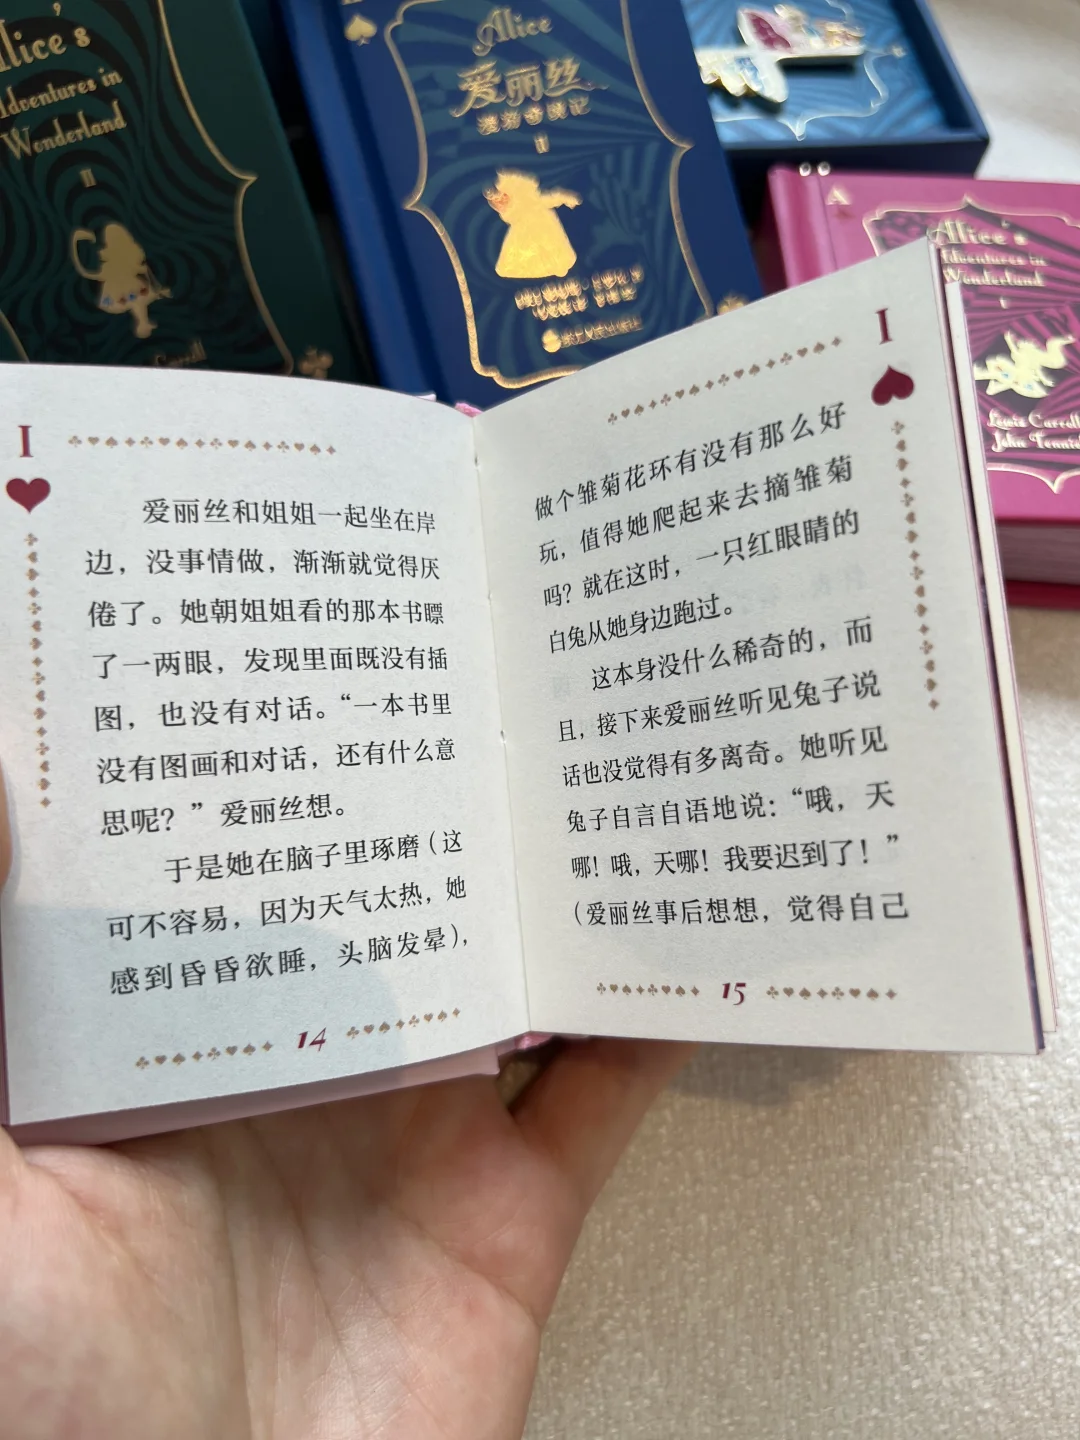 Alice's
Adventures in
Wonderland
II
Alice
爱丽丝
漫游奇境记
II
A
Alice's
Adventures in
Wonderland
I
Lewis Carroll
I
爱丽丝和姐姐一起坐在岸
边，没事情做，渐渐就觉得厌
倦了。她朝姐姐看的那本书瞟
了一两眼，发现里面既没有插
图，也没有对话。“一本书里
没有图画和对话，还有什么意
思呢？”爱丽丝想。
于是她在脑子里琢磨（这
可不容易，因为天气太热，她
感到昏昏欲睡，头脑发晕），
14
I
做个雏菊花环有没有那么好
玩，值得她爬起来去摘雏菊
吗？就在这时，一只红眼睛的
白兔从她身边跑过。
这本身没什么稀奇的，而
且，接下来爱丽丝听见兔子说
话也没觉得有多离奇。她听见
兔子自言自语地说：“哦，天
哪！哦，天哪！我要迟到了！”
（爱丽丝事后想想，觉得自己
15